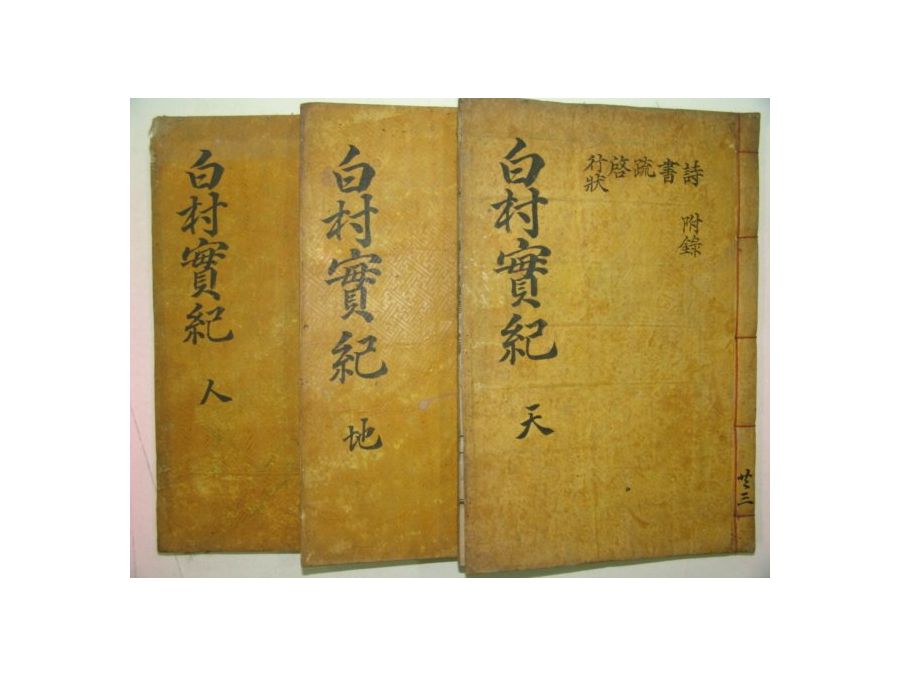 詩
書
疏
啓
行狀
附錄
白村實紀
天
共三
白村實紀
地
白村實紀
人